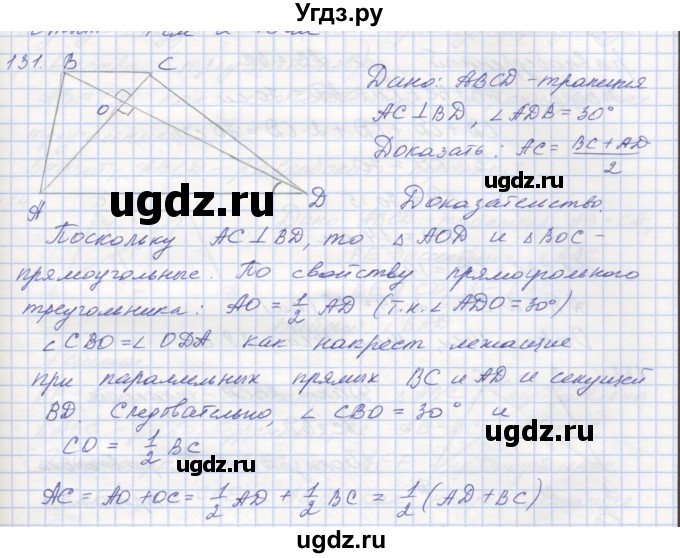 Угдз.ру
131.
B
C
O
A
D
Дано: ABCD - трапеция
AC ⊥ BD, ∠ADB = 30°
Доказать: AC = BC + AD / 2
ugdz.ru
ugdz.ru
Доказательство.
Поскольку AC ⊥ BD, то △ AOD и △ BOC -
прямоугольные. По свойству прямоугольного
треугольника: AO = 1/2 AD (т.к. ∠ ADO = 30°)
∠ CBO = ∠ ODA как накрест лежащие
при параллельных прямых BC и AD и секущей
BD. Следовательно, ∠ CBO = 30° и
CO = 1/2 BC
ugdz.ru
ugdz.ru
AC = AO + OC = 1/2 AD + 1/2 BC = 1/2 (AD + BC)
ugdz.ru
ugdz.ru